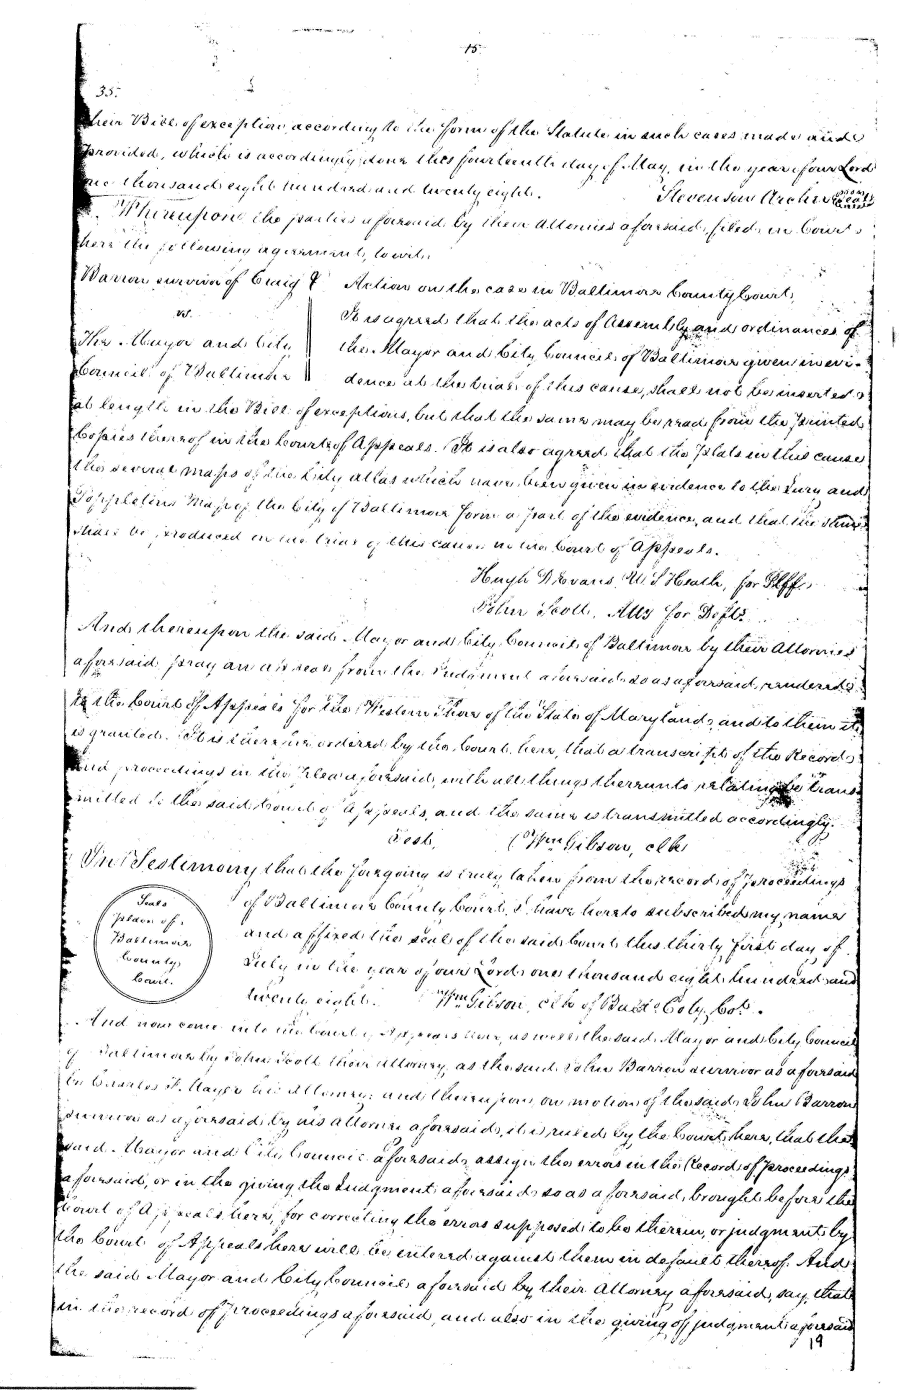 15
35.
their Bill of exception according to the form of the Statute in such cases made and
provided, which is accordingly done this fourteenth day of May, in the year of our Lord
one thousand eight hundred and twenty eight. Stevenson Archer
Whereupon the parties aforesaid by their attornies aforesaid, filed in Court
here the following agreement, to wit.
Barron survivor of Craig
vs.
The Mayor and City
Council of Baltimore
Action on the case in Baltimore County Court,
It is agreed that the acts of Assembly and ordinances of
the Mayor and City Council of Baltimore given in evi-
dence at the trial of this cause, shall not be inserted
at length in the Bill of exceptions, but that the same may be read from the printed
Copies thereof in the Court of Appeals. It is also agreed that the Plats in this cause
the several maps of the City atlas which have been given in evidence to the Jury and
Poppletons Map of the City of Baltimore form a part of the evidence, and that the same
shall be produced in the trial of this cause in the Court of Appeals.
Hugh D Evans, U S Heath, for Plffs.
John Scott, Atty for Defts.
And thereupon the said Mayor and City Council of Baltimore by their Attornies
aforesaid pray an appeal from the Judgment aforesaid so as aforesaid, rendered
to the Court of Appeals for the Western Shore of the State of Maryland, and to them it
is granted. It is therefore ordered by the Court here, that a transcript of the Record
and proceedings in the Plea aforesaid, with all things thereunto relating be trans-
mitted to the said Court of Appeals, and the same is transmitted accordingly.
Test, Wm Gibson, clk
In Testimony that the foregoing is truly taken from the record of proceedings
Seals
place of
Baltimore
County
Court.
of Baltimore County Court, I have hereto subscribed my name
and affixed the seal of the said Court this thirty first day of
July in the year of our Lord one thousand eight hundred and
twenty eight. Wm Gibson, clk of Balto Coty Cot.
And now come into the Court of Appeals here, as well the said Mayor and City Council
of Baltimore by John Scott their attorney, as the said John Barron survivor as aforesaid
by Charles F. Mayer his Attorney: and thereupon, on motion of the said John Barron
survivor as aforesaid by his attorney aforesaid, it is ruled by the Court here, that the
said Mayor and City Council aforesaid, assign the errors in the Record of proceedings
aforesaid, or in the giving the Judgment aforesaid so as aforesaid, brought before the
Court of Appeals here, for correcting the errors supposed to be therein, or judgment by
the Court of Appeals here will be entered against them in default thereof. And
the said Mayor and City Council aforesaid by their Attorney aforesaid, say, that
in the record of proceedings aforesaid, and also in the giving of judgment aforesaid
19